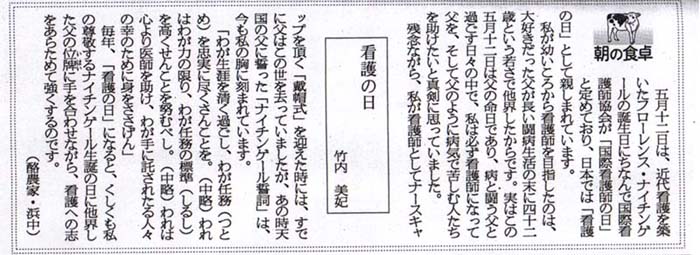 朝の食卓
看護の日
竹内 美妃
五月十二日は、近代看護を築
いたフローレンス・ナイチンゲ
ールの誕生日にちなんで国際看
護師協会が「国際看護師の日」
と定めており、日本では「看護
の日」として親しまれています。
私が幼いころから看護師を目指したのは、
大好きだった父が長い闘病生活の末に四十二
歳という若さで他界したからです。実はこの
五月十二日は父の命日であり、病と闘う父と
過ごす日々の中で、私は必ず看護師になって
父を、そして父のように病気で苦しむ人たち
を助けたいと真剣に思っていました。
残念ながら、私が看護師としてナースキャ
ップを頂く「戴帽式」を迎えた時には、すで
に父はこの世を去っていましたが、あの時天
国の父に誓った「ナイチンゲール誓詞」は、
今も私の胸に刻まれています。
「わが生涯を清く過ごし、わが任務（つと
め）を忠実に尽くさんことを。（中略）われ
はわが力の限り、わが任務の標準（しるし）
を高くせんことを努むべし。（中略）われは
心より医師を助け、わが手に託されたる人々
の幸のために身をささげん」
毎年、「看護の日」になると、くしくも私
の尊敬するナイチンゲール生誕の日に他界し
た父の位牌に手を合わせながら、看護への志
をあらためて強くするのです。
（酪農家・浜中）